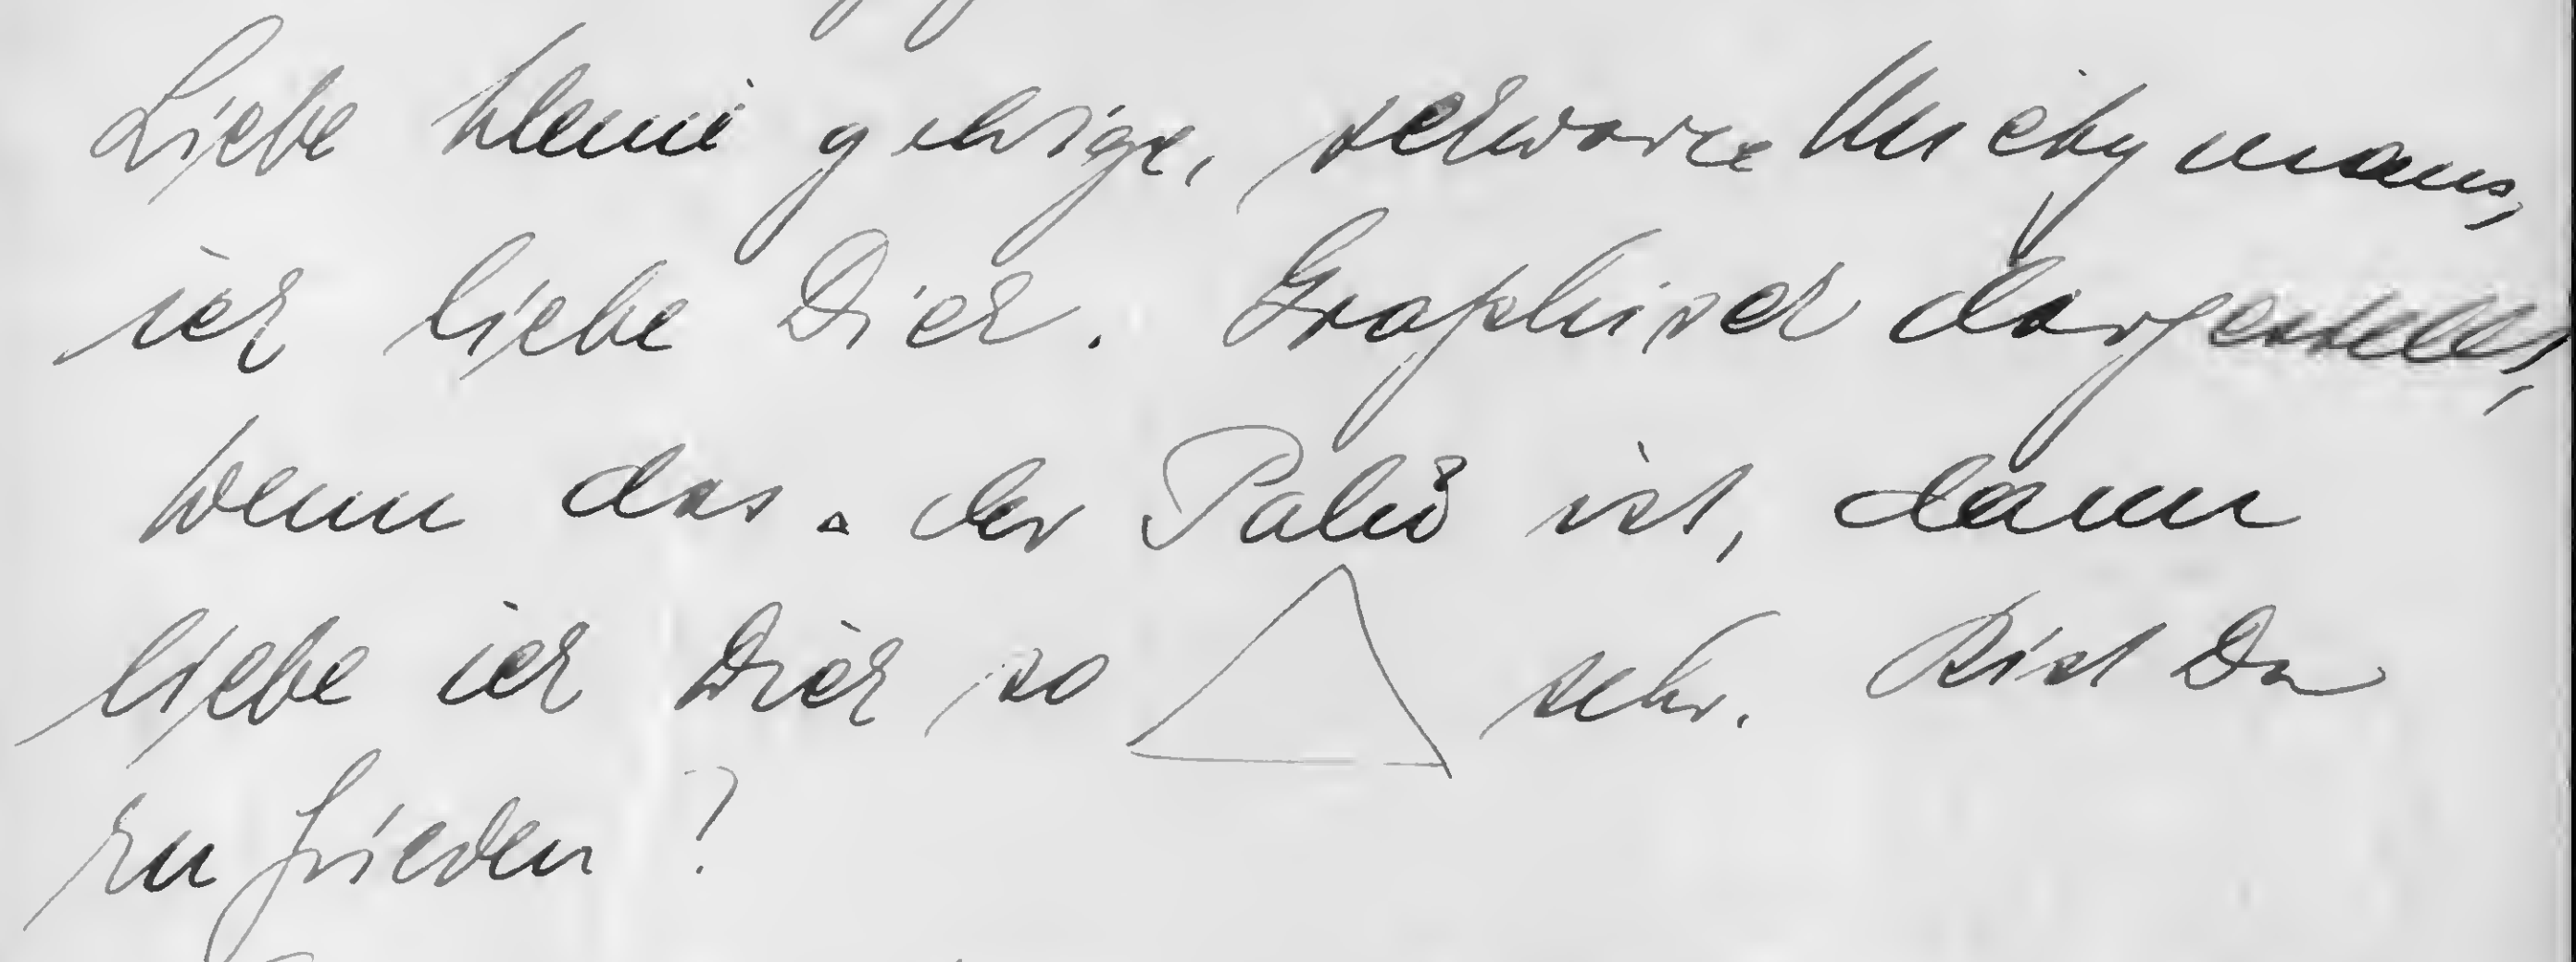 Liebe kleine gelbige, schwarze Mickymaus,
ich liebe Dich. Graphisch dargestellt,
wenn das △ der Palü ist, dann
liebe ich Dich so △ sehr. Bist Du
zufrieden?